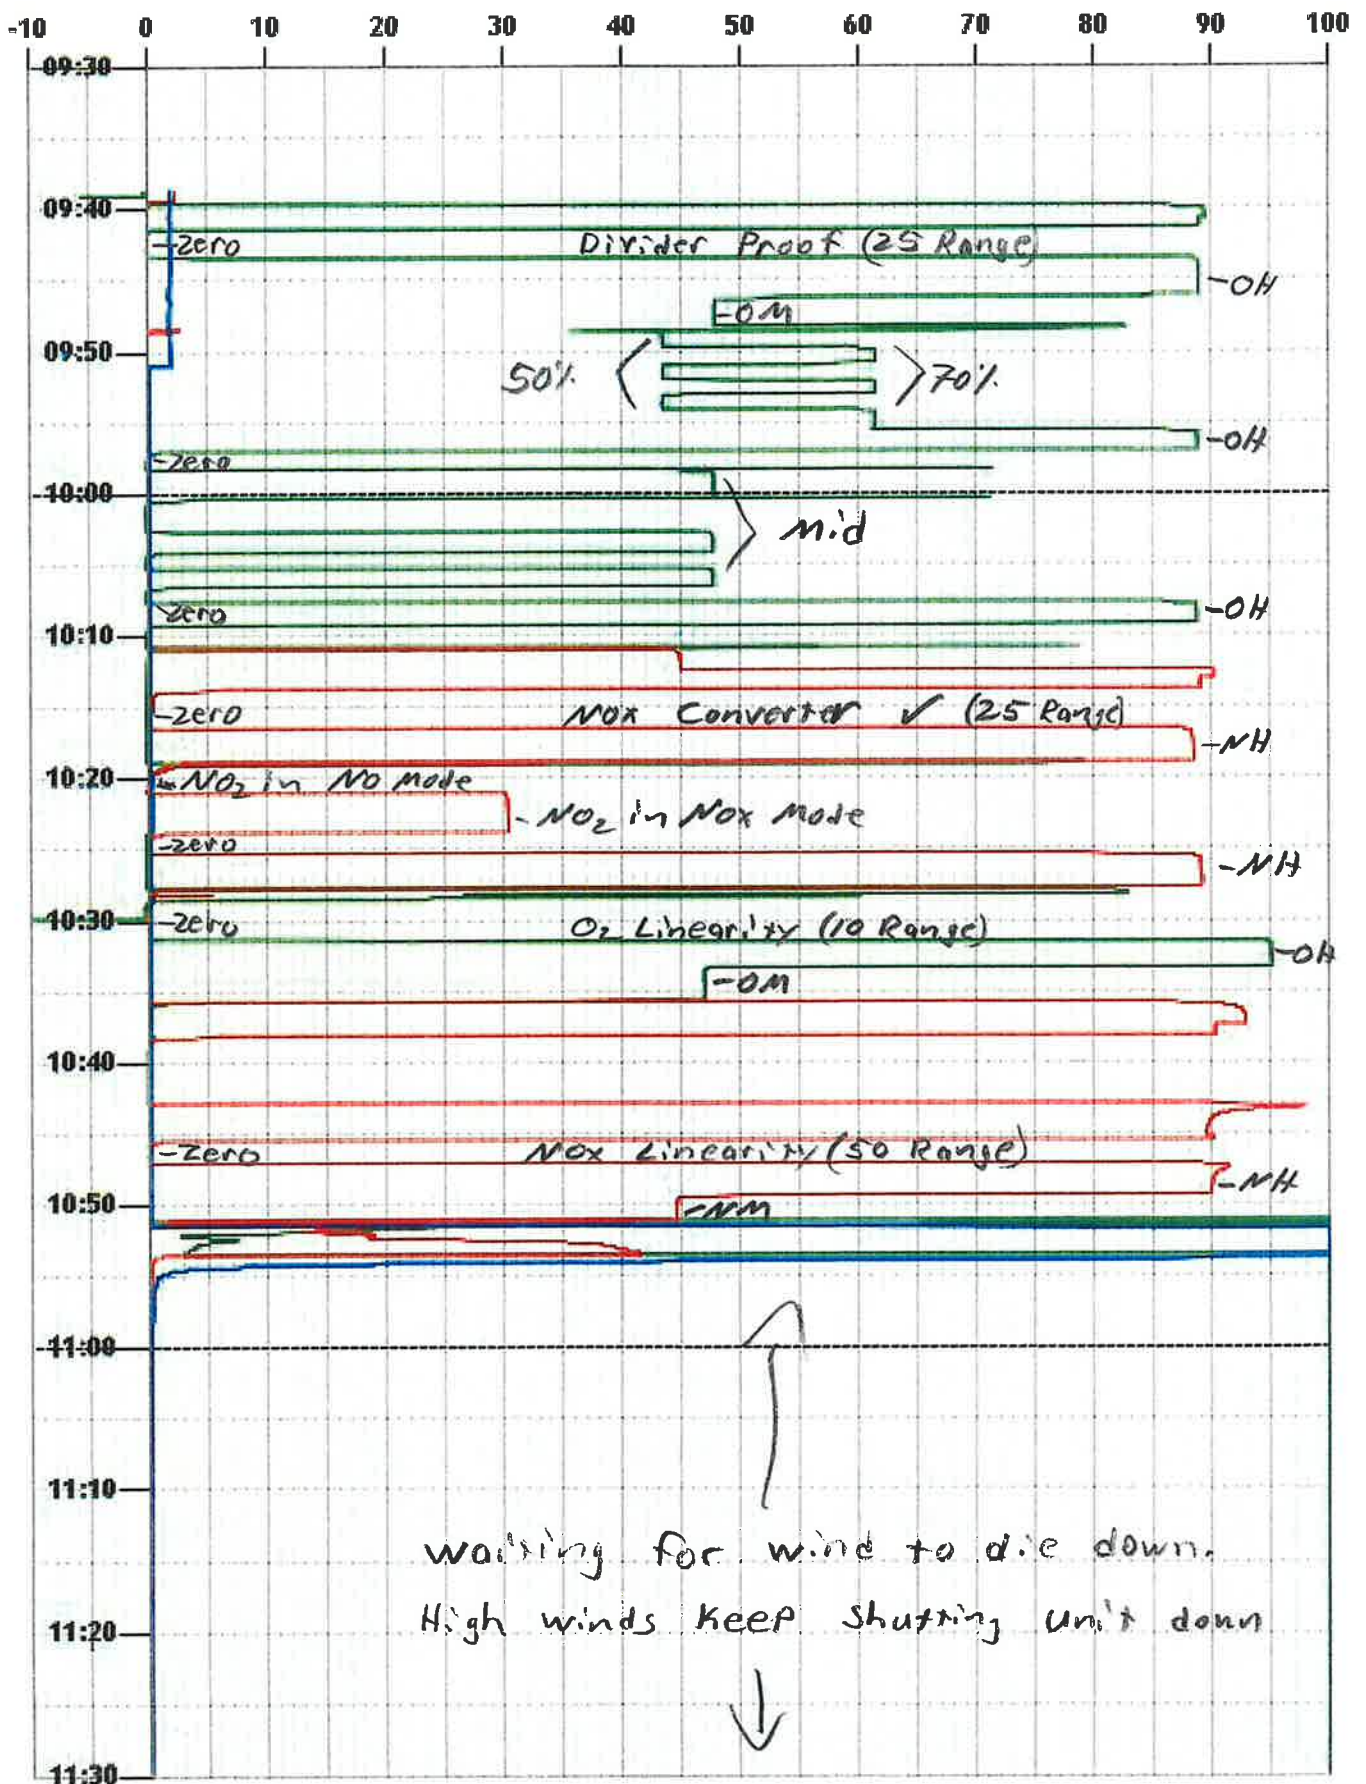 -10 0 10 20 30 40 50 60 70 80 90 100
09:30
09:40
-zero Divider Proof (25 Range)
-OH
-OM
09:50
50% 70%
-OH
-zero
10:00
Mid
-zero -OH
10:10
-zero NOx Converter ✓ (25 Range)
-NH
10:20
NO2 in NO Mode
-NO2 in NOx Mode
-zero
-NH
10:30
-zero O2 Linearity (10 Range)
-OH
-OM
10:40
-Zero NOx Linearity (50 Range)
-NH
10:50
-NM
11:00
11:10
waiting for wind to die down.
High winds keep shutting unit down
11:20
11:30